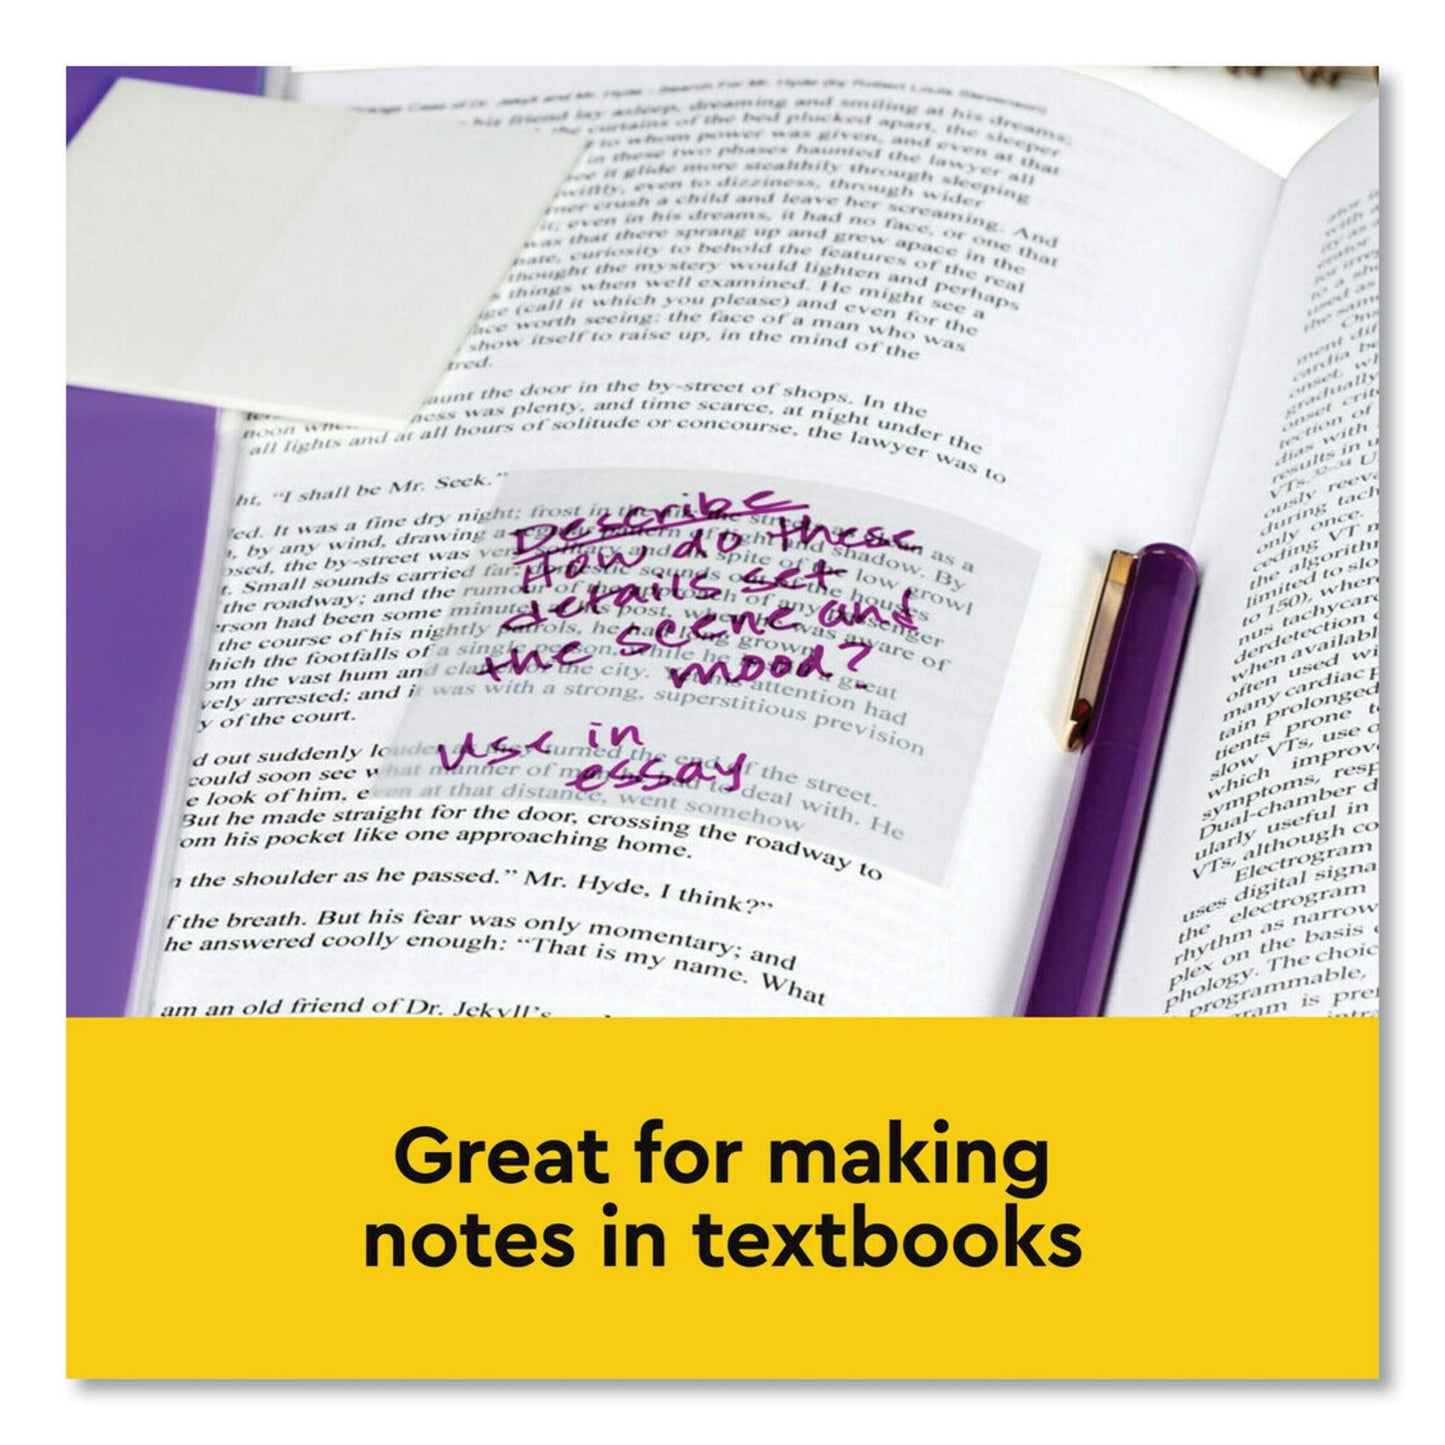 Strange Case of Dr. Jekyll and Mr. Hyde - Search For Mr. Hyde (by Robert Louis Stevenson)
his friend lay asleep, dreaming and smiling at his dreams;
the curtains of the bed plucked apart, the sleeper
to whom power was given, and even at that
in these two phases haunted the lawyer all
it glide more stealthily through sleeping
wiftly, even to dizziness, through wider
ner crush a child and leave her screaming. And
it; even in his dreams, it had no face, or one that
was that there sprang up and grew apace in the
nate, curiosity to behold the features of the real
thought the mystery would lighten and perhaps
things when well examined. He might see a
ge (call it which you please) and even for the
ace worth seeing: the face of a man who was
show itself to raise up, in the mind of the
tred.
aunt the door in the by-street of shops. In the
ness was plenty, and time scarce, at night under the
all lights and at all hours of solitude or concourse, the lawyer was to
ht, "I shall be Mr. Seek."
ed. It was a fine dry night; frost in the
, by any wind, drawing a pattern of light and shadow. By
osed, the by-street was very solitary and spite of the low growl
t. Small sounds carried far; domestic sounds out of the houses
the roadway; and the rumour of the approach of any passenger
rson had been some minutes post, when he was aware of
the course of his nightly patrols, he had long grown
hich the footfalls of a single person, while he great
om the vast hum and clatter the city. attention had
vely arrested; and it was with a strong, superstitious prevision
y of the court.
d out suddenly louder as they turned the end of the street.
could soon see what manner of man had to deal with. He
e look of him, even at that distance, went somehow
But he made straight for the door, crossing the roadway to
om his pocket like one approaching home.
n the shoulder as he passed." Mr. Hyde, I think?"
f the breath. But his fear was only momentary; and
he answered coolly enough: "That is my name. What
am an old friend of Dr. Jekyll's
Describe
How do these
details set
the scene and
mood?
Use in
essay
ment dif
cardia be
onset, wh
gradually
onset crite
tection of
dias with
results in u
VTs.32-34 U
ously reev
during tach
only once.
ceding VT m
the algorithm
limited to slo
to 150), wher
nus tachycard
derdetection
when availabl
often used wi
many cardiac p
tain prolonged
tients prone t
slow VTs, use o
which improv
symptoms, resp
Dual-chamber d
ularly useful in
VTs, although co
Electrogram
uses digital signa
the electrogram
rhythm as narrow
plex on the basis
phology. The choic
programmable,
gram is pre
Great for making
notes in textbooks